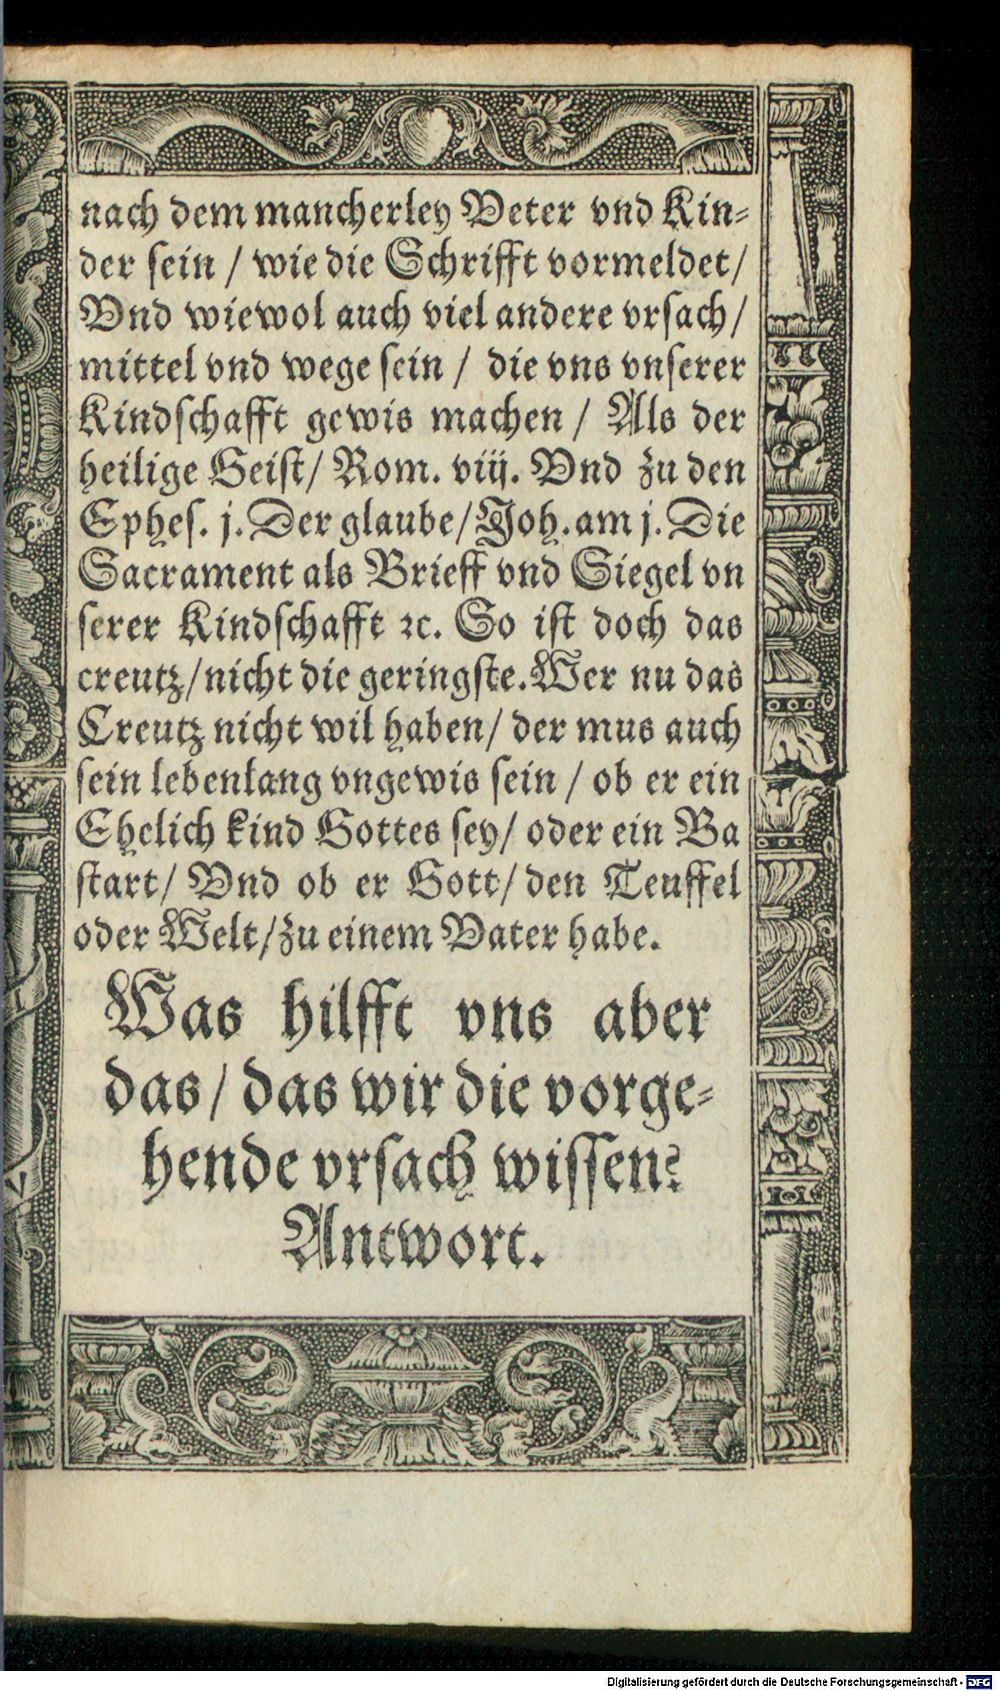 nach dem mancherley Veter vnd Kin-
der sein / wie die Schrifft vormeldet /
Vnd wiewol auch viel andere vrsach /
mittel vnd wege sein / die vns vnserer
Kindschafft gewis machen / Als der
heilige Geist / Rom. viij. Vnd zu den
Ephes. j. Der glaube / Joh. am j. Die
Sacrament als Brieff vnd Siegel vn
serer Kindschafft ꝛc. So ist doch das
creutz / nicht die geringste. Wer nu das
Creutz nicht wil haben / der mus auch
sein lebenlang vngewis sein / ob er ein
Ehelich kind Gottes sey / oder ein Ba
start / Vnd ob er Gott / den Teuffel
oder Welt / zu einem Vater habe.
Was hilfft vns aber
das / das wir die vorge-
hende vrsach wissen?
Antwort.
Digitalisierung gefördert durch die Deutsche Forschungsgemeinschaft - DFG